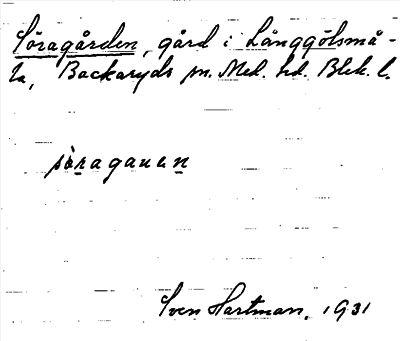 Söragården, gård i Långgölsmå-
la, Backaryds sn. Med. hd. Blek. l.
sòragauen
Sven Hartman, 1931